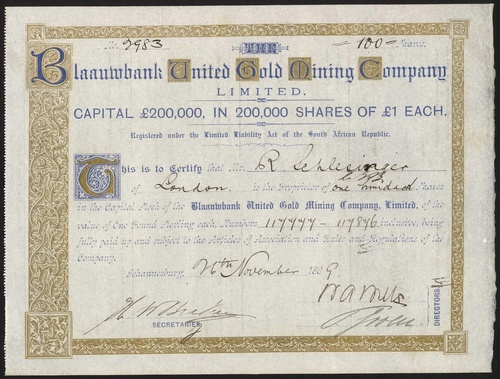 No. 2983 = 100 = Shares.
THE
Blaauwbank United Gold Mining Company
LIMITED.
CAPITAL £200,000, IN 200,000 SHARES OF £1 EACH.
Registered under the Limited Liability Act of the South African Republic.
This is to Certify that Mr. R Schlesinger
of London. is the Proprietor of one hundred Shares
in the Capital Stock of the Blaauwbank United Gold Mining Company, Limited, of the
value of One Pound Sterling each, Numbers 117777 - 117876 inclusive, being
fully paid up and subject to the Articles of Association and Rules and Regulations of the
Company.
Johannesburg, 26th November 1889
SECRETARIES
DIRECTORS